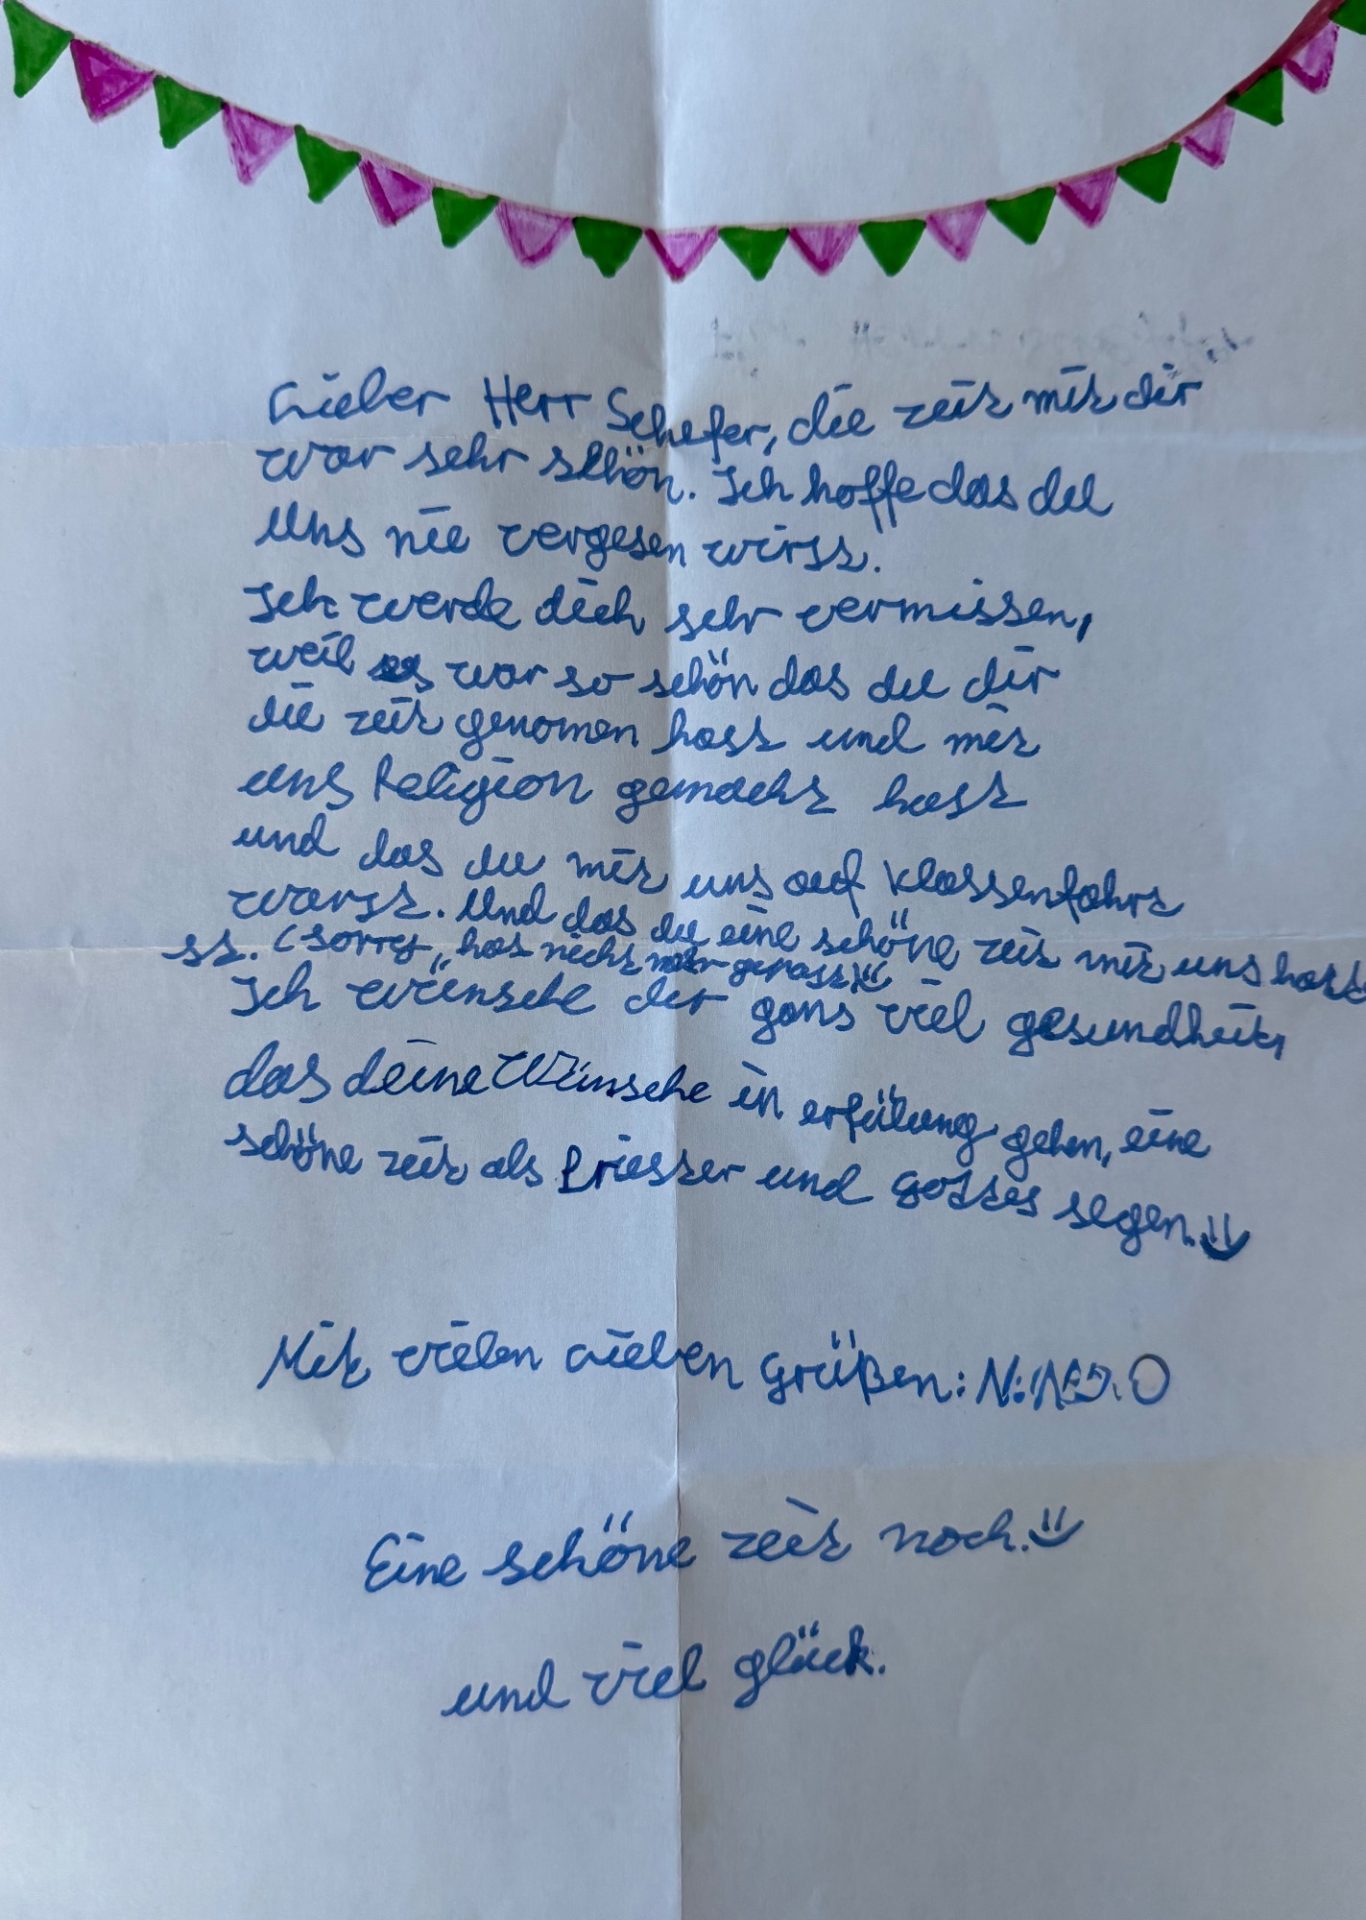 Lieber Herr Schefer, die zeit mit dir
war sehr schön. Ich hoffe das du
Uns nie vergesen wirst.
Ich werde dich sehr vermissen,
weil es war so schön das du dir
die zeit genomen hast und mit
uns Religion gemacht hast
und das du mit uns auf Klassenfahrt
warst. Und das du eine schöne zeit mit uns hast
st. (sorry, hat nicht mehr gepasst)
Ich wünsche dir gans viel gesundheit,
das deine Wünsche in erfülung gehen, eine
schöne zeit als Priester und gottes segen.
Mit vielen Lieben Grüßen:
Eine schöne zeit noch.
und viel glück.